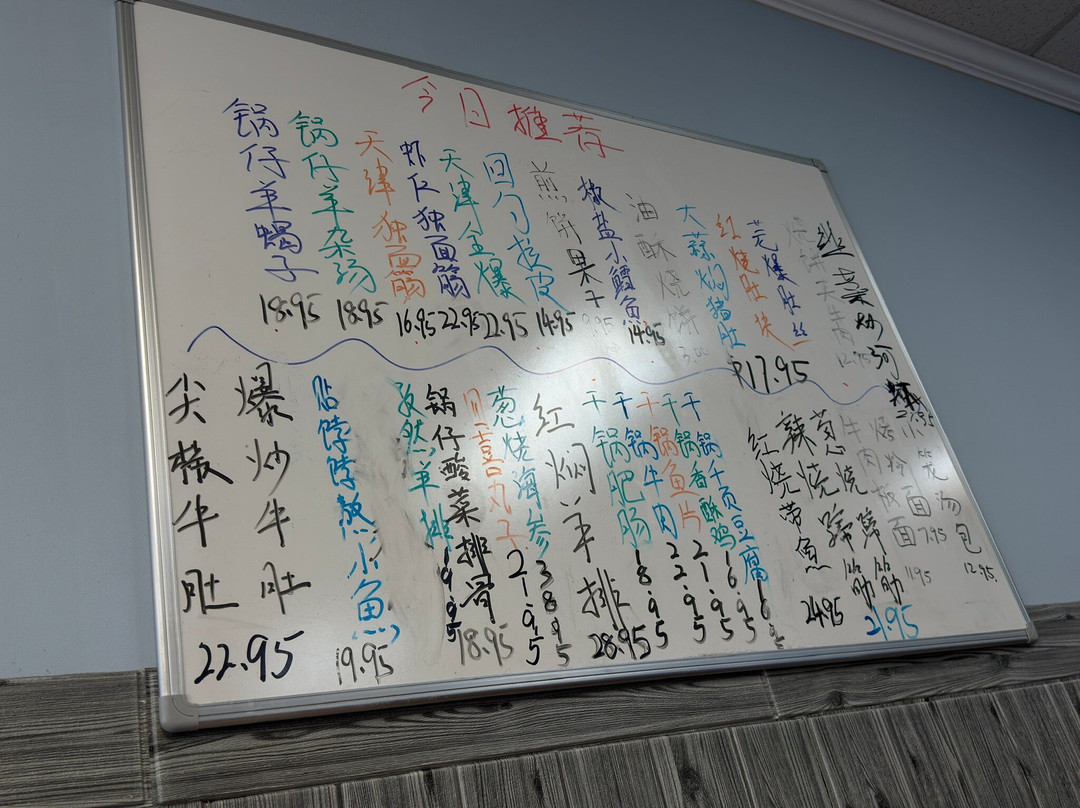 今日推荐
锅仔羊蝎子
18.95
锅仔羊杂汤
18.95
天津独面筋
16.95
虾仁独面筋
22.95
天津全爆
22.95
回勺拉皮
14.95
煎饼果子
椒盐小鱈魚
14.95
油酥烧饼
3.00
大蒜焖猪肚
红烧肚块
芫爆肚丝
17.95
烧饼夹牛肉
12.95
炒河
尖椒牛肚
爆炒牛肚
22.95
贴饽饽熬小魚
19.95
孜然羊排
19.95
锅仔酸菜排骨
18.95
四喜丸子
21.95
葱烧海参
38.95
红焖羊排
28.95
干锅肥肠
18.95
干锅牛肉
22.95
干锅鱼片
21.95
干锅香酥鸡
16.95
干锅千页豆腐
16.95
红烧带魚
24.95
辣烧蹄筋
葱烧蹄筋
21.95
牛肉板面
11.95
烤冷面
7.95
小笼汤包
12.95